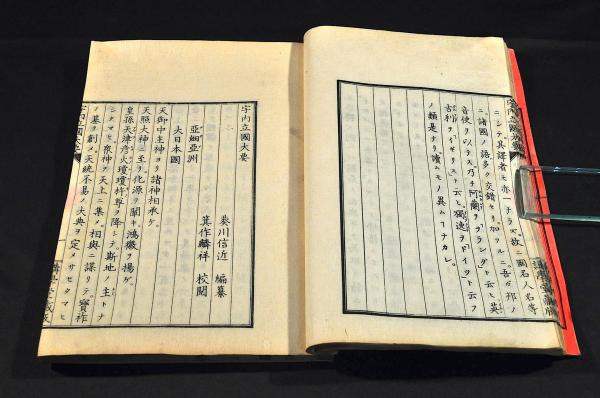 ニシテ其譯者モ亦一ナラズ故ニ國名人名等
ニ諸國ノ語多ク交錯セリ。加フルニ吾ガ邦ノ
音使ヲ以テス乃チ阿蘭ヲヲランダト云ヒ英
吉利ヲイギリスト云ヒ獨逸ヲドイツト云フ
ノ類是ナリ讀ムモノ異ムナカレ。
宇内立國大要
秦川信近 編纂
箕作麟祥 校閲
亞細亞洲
大日本國
天御中主神ヨリ諸神相承ケ。
天照大神ニ至リ化源ヲ闢キ鴻徽ヲ揚ゲ。
皇孫天津彦火瓊瓊杵尊ヲ降シテ。斯地ノ主トナ
シタマヒ。衆神ヲ天上ニ集メ。相與ニ謀リテ。寳祚
ノ基ヲ創メ。天統不易ノ大典ヲ定メサセタマヒ
宇内立國大要